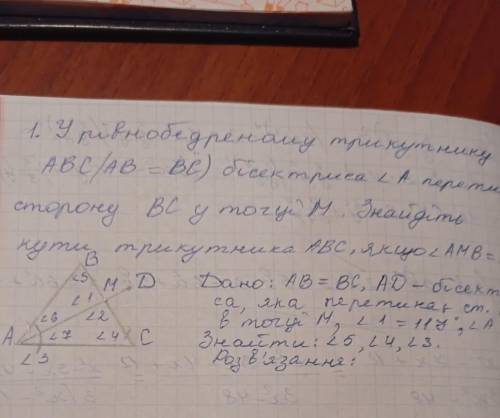 1. У рівнобедреному трикутнику
ABC (AB = BC) бісектриса ∠A перети
сторону BC у точці M. Знайдіть
кути трикутника ABC, якщо ∠AMB =
B
∠5 M D
∠1
∠6 ∠2
A ∠7 ∠4 C
∠3
Дано: AB = BC, AD – бісект
са, яка перетинає ст.
в точці M, ∠1 = 117°, ∠A
Знайти: ∠5, ∠4, ∠3.
Розв'язання: